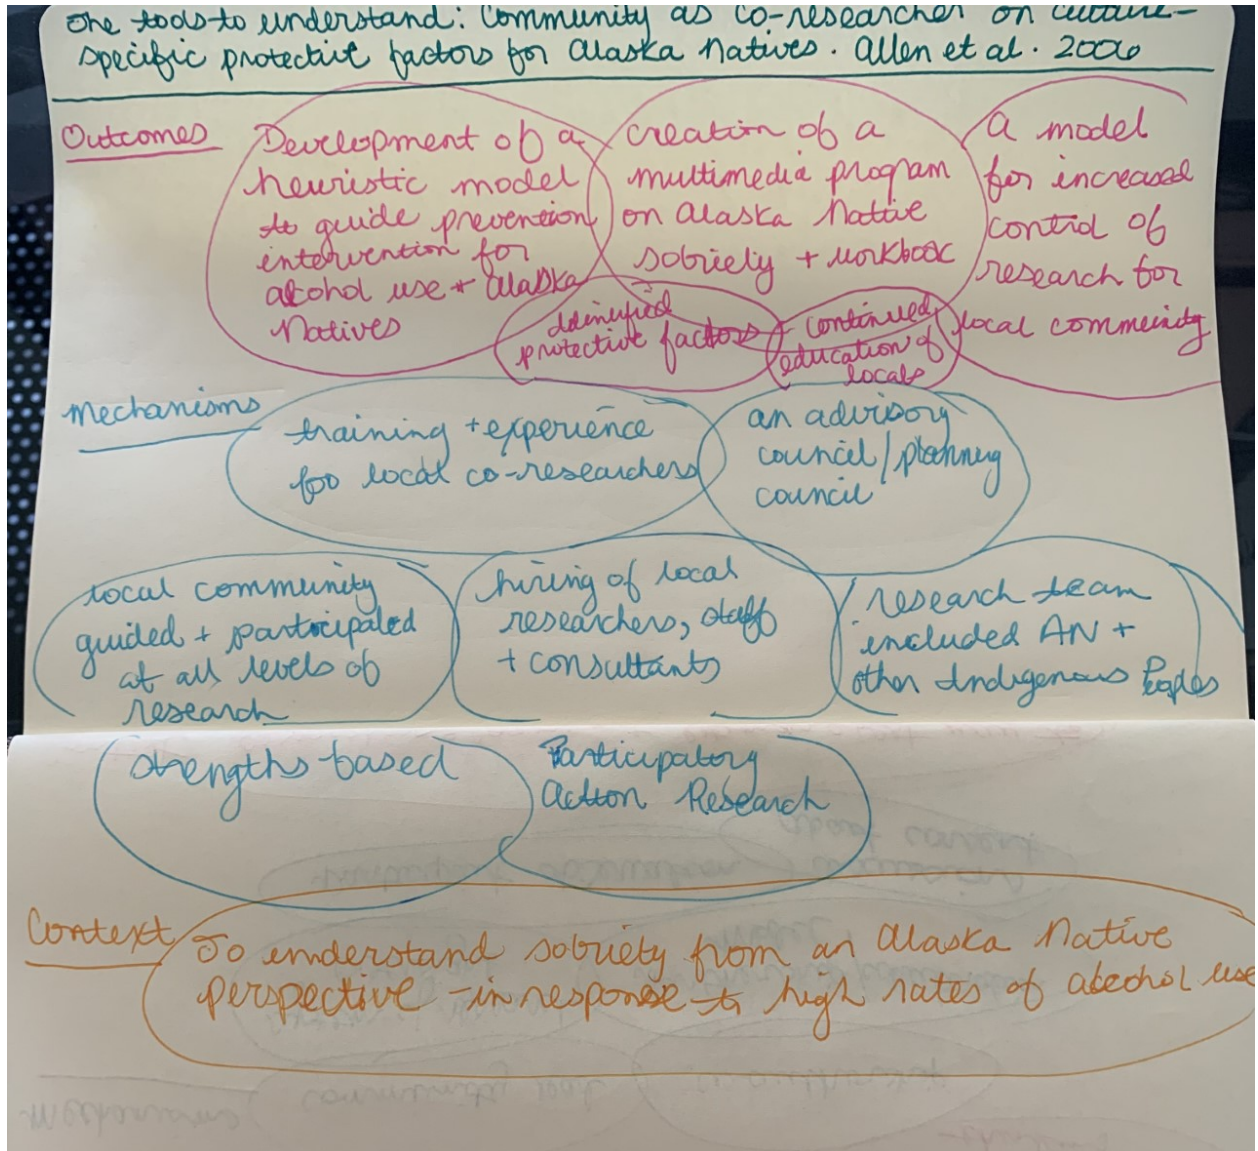 the tools to understand: Community as co-researcher on culture-
specific protective factors for Alaska Natives. Allen et al. 2006
Outcomes
Development of a
heuristic model
to guide prevention
intervention for
alcohol use + Alaska
Natives
creation of a
multimedia program
on Alaska Native
sobriety + workbook
A model
for increased
control of
research for
local community
Identified
protective factors
+ continued
education of
locals
Mechanisms
training + experience
for local co-researchers
an advisory
council/planning
council
local community
guided + participated
at all levels of
research
hiring of local
researchers, staff
+ consultants
research team
included AN +
other Indigenous Peoples
strengths based
Participatory
Action Research
Context
To understand sobriety from an Alaska Native
perspective - in response to high rates of alcohol use